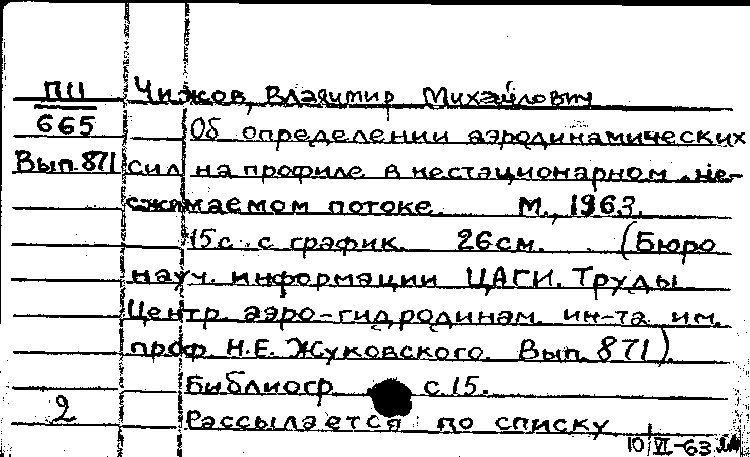 ПII Чижов, Владимир Михайлович
665 Об определении аэродинамических
Вып. 871 сил на профиле в нестационарном не-
сжимаемом потоке. М., 1963.
15 с. с график. 26 см. (Бюро
науч. информации ЦАГИ. Труды
Центр. аэро-гидродинам. ин-та им.
проф. Н.Е. Жуковского. Вып. 871).
Библиогр. с. 15.
2 Рассылается по списку
10/VI-63